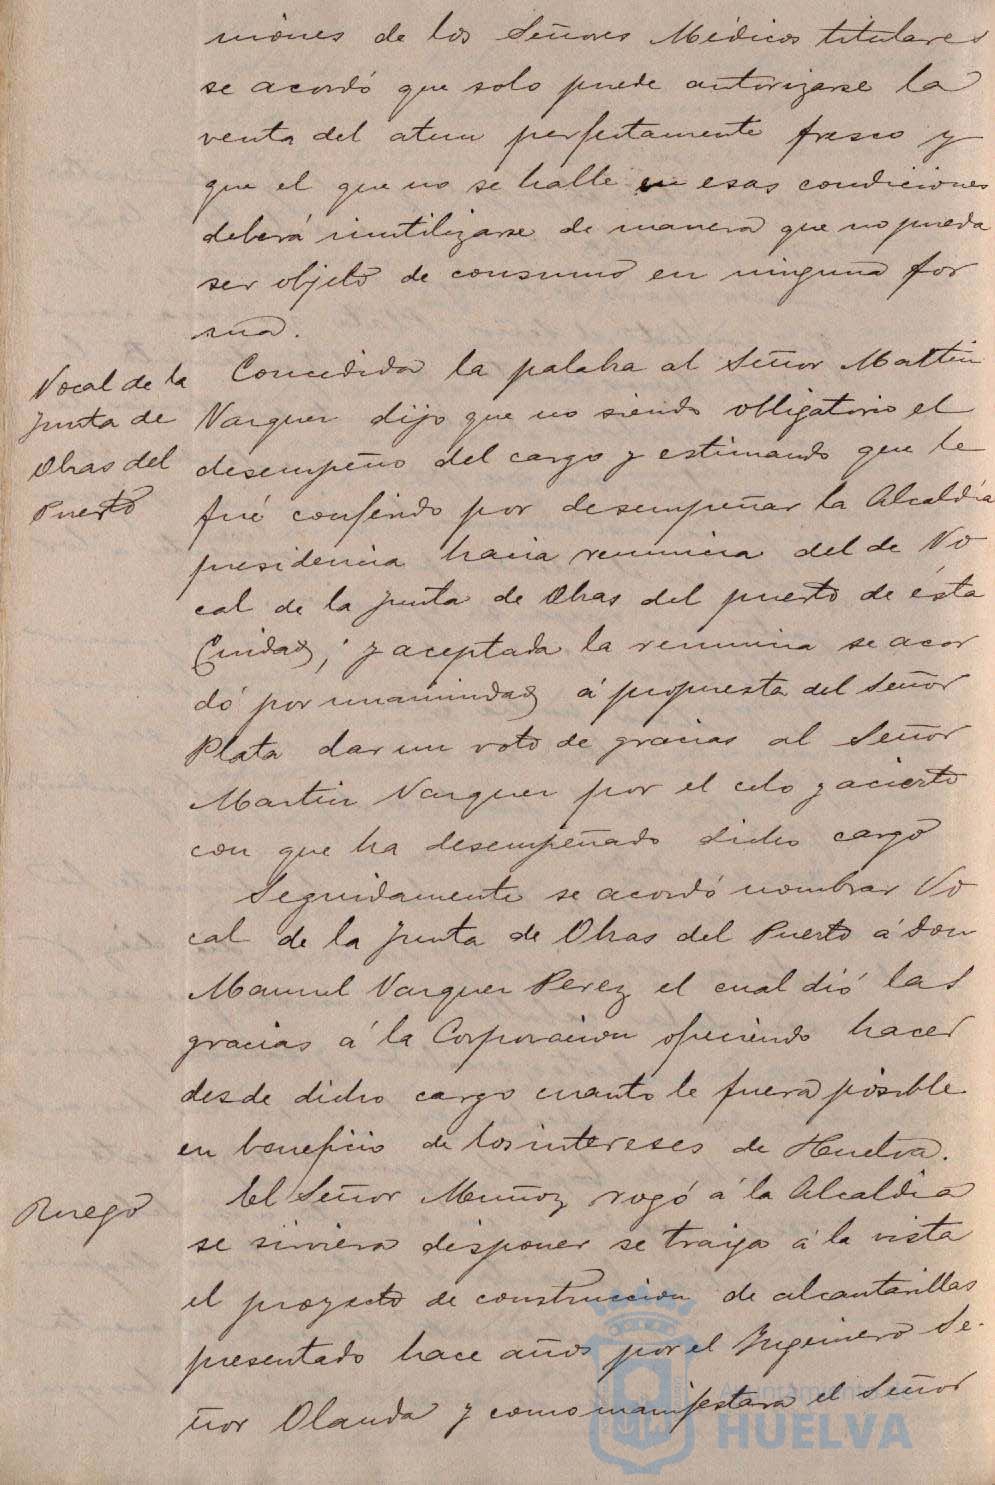 niones de los Señores Médicos titulares
se acordó que solo puede autorizarse la
venta del atun perfectamente fresco y
que el que no se halle en esas condiciones
deberá inutilizarse de manera que no pueda
ser objeto de consumo en ninguna for
ma.
Vocal de la
Junta de
Obras del
Puerto
Concedida la palabra al Señor Martin
Vazquez dijo que no siendo obligatorio el
desempeño del cargo y estimando que le
fué conferido por desempeñar la Alcaldia
presidencia hacia renuncia del de Vo
cal de la Junta de Obras del puerto de ésta
Ciudad; y aceptada la renuncia se acor
dó por unanimidad á propuesta del Señor
Plata dar un voto de gracias al Señor
Martin Vazquez por el celo y acierto
con que ha desempeñado dicho cargo
Seguidamente se acordó nombrar Vo
cal de la Junta de Obras del Puerto á don
Manuel Vazquez Perez el cual dió las
gracias á la Corporacion ofreciendo hacer
desde dicho cargo cuanto le fuera posible
en beneficio de los intereses de Huelva.
Ruego
El Señor Muñoz rogó á la Alcaldia
se sirviera disponer se traiga á la vista
el proyecto de construccion de alcantarillas
presentado hace años por el Ingeniero Se-
ñor Olanda y como manifestara el Señor
Ayuntamiento de
HUELVA